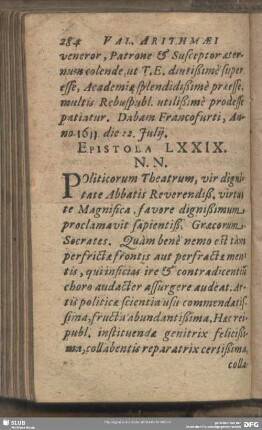 284 VAL. ARITHMÆI
veneror, Patrone & Susceptor æter-
num colende, ut T.E. diutißimè super
esse, Academiæ splendidißimè præesse,
multis Rebuspubl. utilißimè prodesse
patiatur. Dabam Francofurti, An-
no 1611 die 12. Julij.
EPISTOLA LXXIX.
N. N.
POliticorum Theatrum, vir digni-
tate Abbatis Reverendiß. virtu-
te Magnifica, favore dignißimum
proclamavit sapientiß. Græcorum
Socrates. Quàm benè nemo est tàm
perfrictæ frontis aut perfractæ men-
tis, qui inficias ire & contradicentiũ
choro audacter assurgere audeat. Ar-
tis politicæ scientia usu commendatis-
sima, fructu abundantißima, Hæc rei-
publ. instituendæ genitrix felicißi-
ma, collabentis reparatrix certißima,
colla-
SLUB
DFG